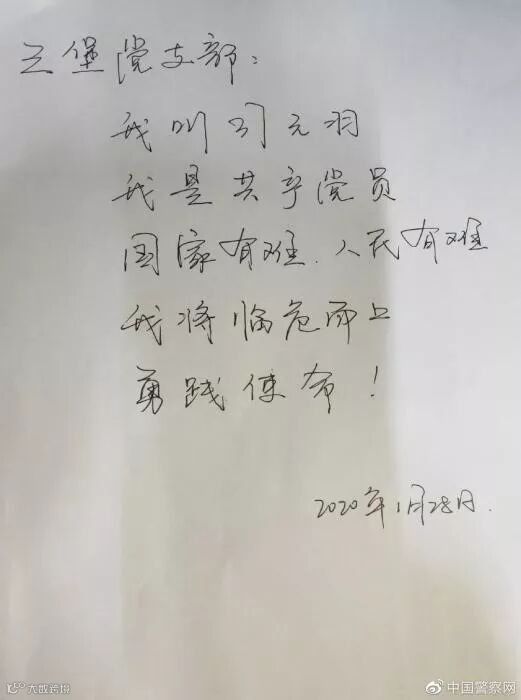 三堡党支部：
我叫司元羽
我是共产党员
国家有难、人民有难
我将临危而上
勇践使命！
2020年1月28日.
大数跨境
中国警察网